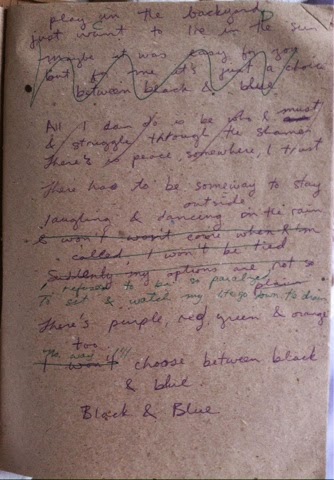 play in the backyard
just want to lie in the sun
maybe it was easy for you
but for me it's just a choice
between black & blue
All I can do is be who I must
& struggle through the shame
There's peace, somewhere, I trust
There has to be someway to stay
outside
laughing & dancing in the rain
I won't won't come when I'm
called, I won't be tied
Suddenly my options are not so
plain
I refused to be so paralized
To sit & watch my life go down to
There's purple, red, green & orange
too
The way I'll
I won't choose between black
& blue
Black & Blue